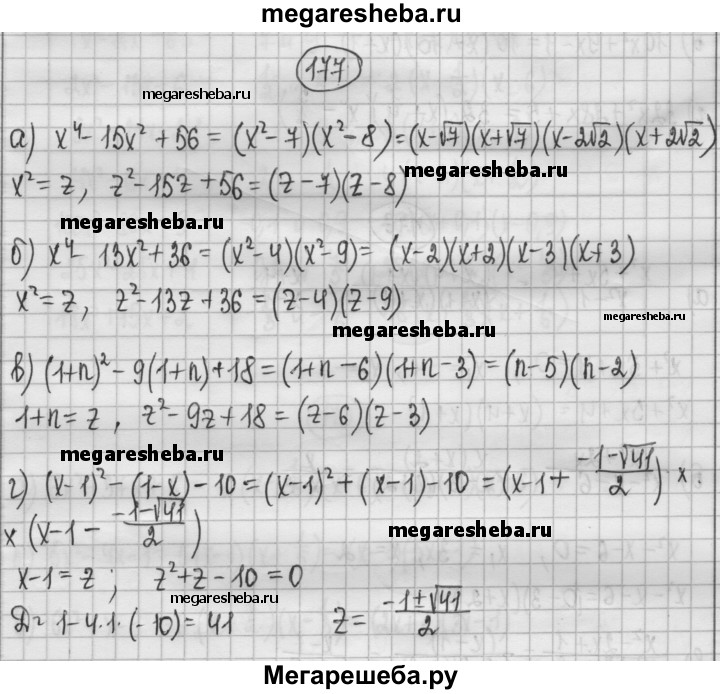 megaresheba.ru
177
megaresheba.ru
а) x⁴ - 15x² + 56 = (x² - 7)(x² - 8) = (x-√7)(x+√7)(x-2√2)(x+2√2)
megaresheba.ru
x² = z, z² - 15z + 56 = (z - 7)(z - 8)
megaresheba.ru
б) x⁴ - 13x² + 36 = (x² - 4)(x² - 9) = (x-2)(x+2)(x-3)(x+3)
x² = z, z² - 13z + 36 = (z-4)(z-9)
megaresheba.ru
megaresheba.ru
в) (1+n)² - 9(1+n) + 18 = (1+n-6)(1+n-3) = (n-5)(n-2)
1+n = z, z² - 9z + 18 = (z-6)(z-3)
megaresheba.ru
г) (x-1)² - (1-x) - 10 = (x-1)² + (x-1) - 10 = (x-1 + (-1-√41)/2) ×
× (x-1 - (-1-√41)/2)
megaresheba.ru
x-1 = z; z² + z - 10 = 0
megaresheba.ru
Д = 1 - 4·1·(-10) = 41 z = (-1±√41)/2
Мегарешеба.ру